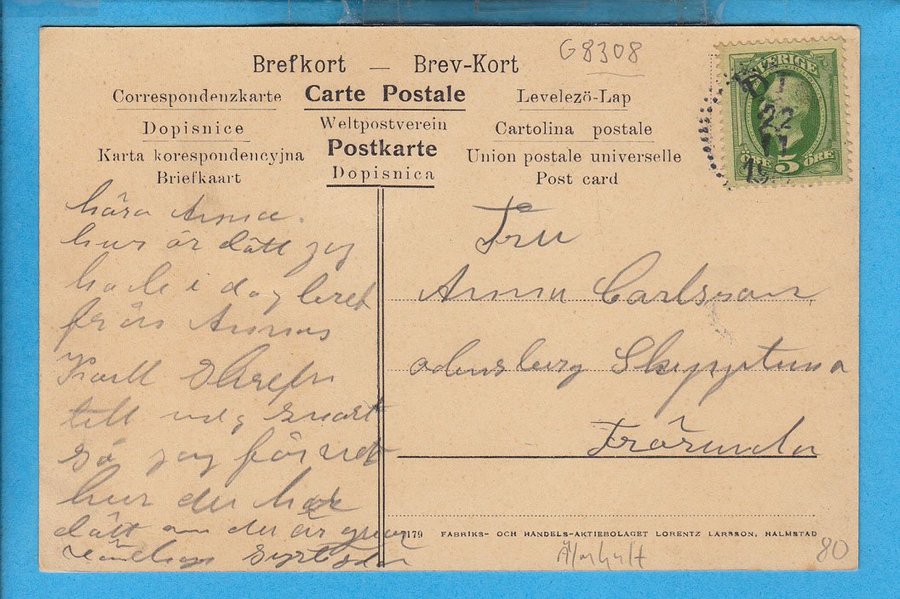 G8308
Brefkort — Brev-Kort
Correspondenzkarte Carte Postale Levelezö-Lap
Dopisnice Weltpostverein Cartolina postale
Karta korespondencyjna Postkarte Union postale universelle
Briefkaart Dopisnica Post card
SVERIGE
22
11
5 ÖRE
kära Anna.
hur är dätt jag
hade i dag
från Annas
Karll
till mig snart
så jag får vet
hur du har
dätt om du är
Fru
Anna Carlsson
odensberg
179 FABRIKS- OCH HANDELS-AKTIEBOLAGET LORENTZ LARSSON, HALMSTAD
80